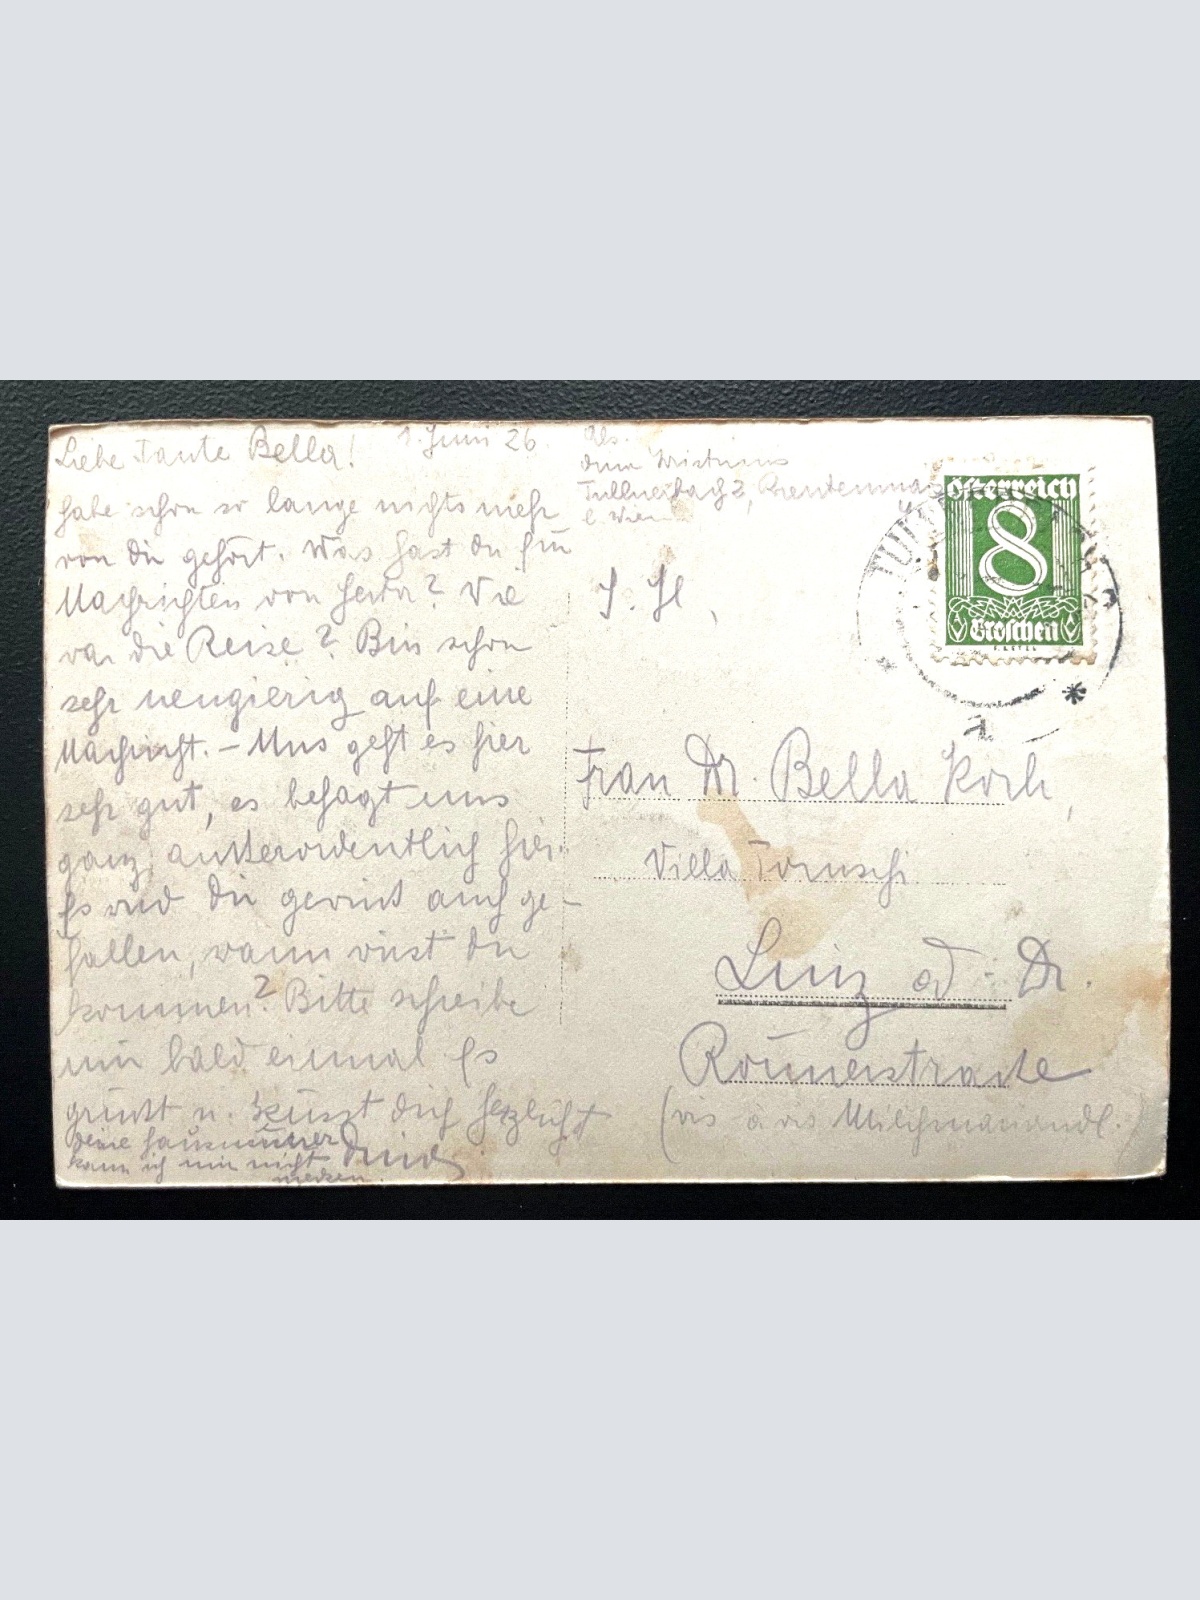 Liebe Tante Bella! 1. Juni 26.
habe schon so lange nichts mehr
von dir gehört. Was hast du für
Nachrichten von ? Wie
war die Reise? Bin schon
sehr neugierig auf eine
Nachricht. – Uns geht es hier
sehr gut, es behagt uns
ganz außerordentlich hier.
Es wird dir gewiß auch ge-
fallen, wann wirst du
kommen? Bitte schreibe
mir bald einmal. Es
grüßt u. küsst dich herzlichst
Deine Hausnummer
kann ich mir nicht
merken.
Abs.
Tullnerbach 2,
b. Wien
Österreich
8
Groschen
a
Frau Dr. Bella Koch,
Villa
Linz a/d. D.
Römerstraße
(vis à vis Milchmariandl.)